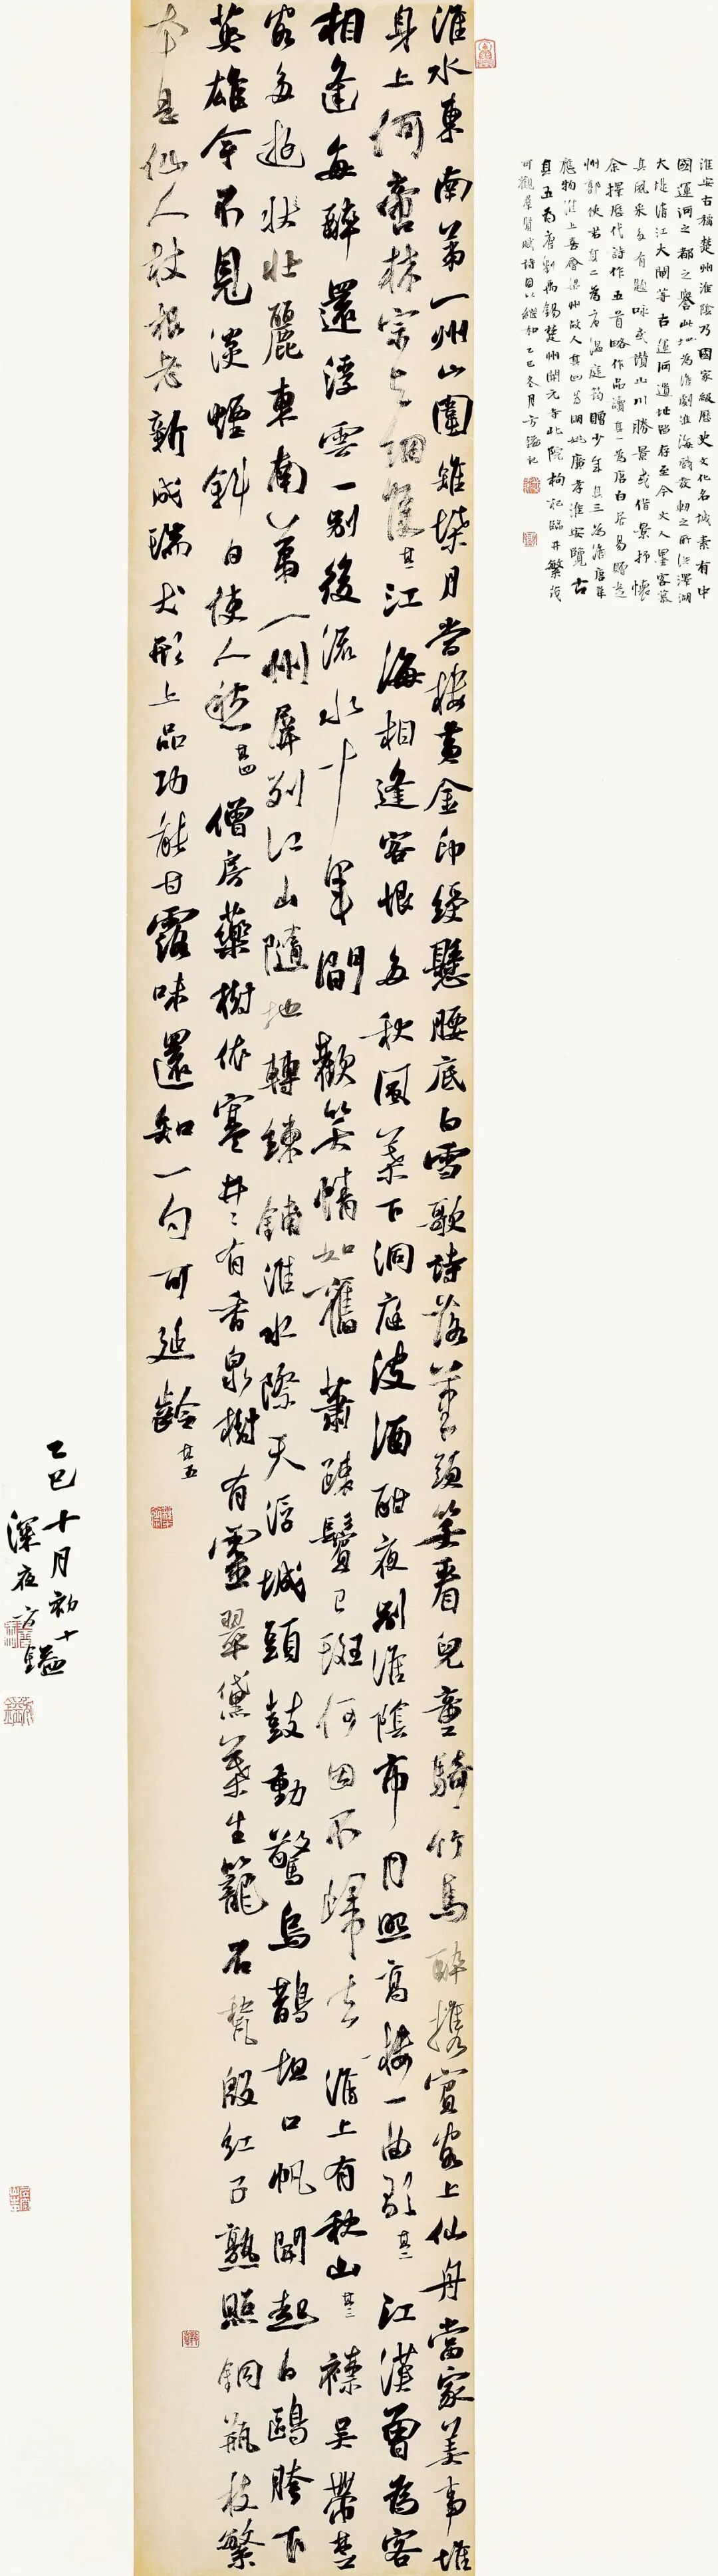 淮安古稱楚州淮陰乃國家級歷史文化名城素有中
國運河之都之譽此地為淮劇淮海戲發祥之所洪澤湖
大堤清江大閘等古運河遺地留存至今文人墨客慕
其風采多有題咏或讚山川勝景或借景抒懷
余擇歷代詩作五首略作品讀其一為唐白居易贈楚
州郭使君其二為唐溫庭筠贈少年其三為唐韋
應物淮上喜會梁州故人其四為明姚廣孝淮安覽古
其五為唐劉禹錫楚州開元寺北院枸杞臨井繁茂
可觀群賢賦詩因以繼和乙巳冬月方鎰記
淮水東南第一州山圍雉堞月當樓黃金印綬懸腰底白雪歌詩落筆頭笑看兒童騎竹馬醉攜賓客上仙舟當家美事堆
身上何啻林宗與細侯其一江海相逢客恨多秋風葉下洞庭波酒酣夜別淮陰市月照高樓一曲歌其二江漢曾為客
相逢每醉還浮雲一別後流水十年間歡笑情如舊蕭疎鬢已斑何因不歸去淮上有秋山其三襟吳帶楚
客多遊壯麗東南第一州屏列江山隨地轉練鋪淮水際天浮城頭鼓動驚烏鵲垻口帆開起白鷗胯下
英雄今不見淡煙斜日使人愁其四僧房藥樹依寒井〻有香泉樹有靈翠黛葉生籠石甃殷紅子熟照銅瓶枝繁
本是仙人杖根老新成瑞犬形上品功能甘露味還知一勺可延齡其五
乙巳十月初十
深夜方鎰